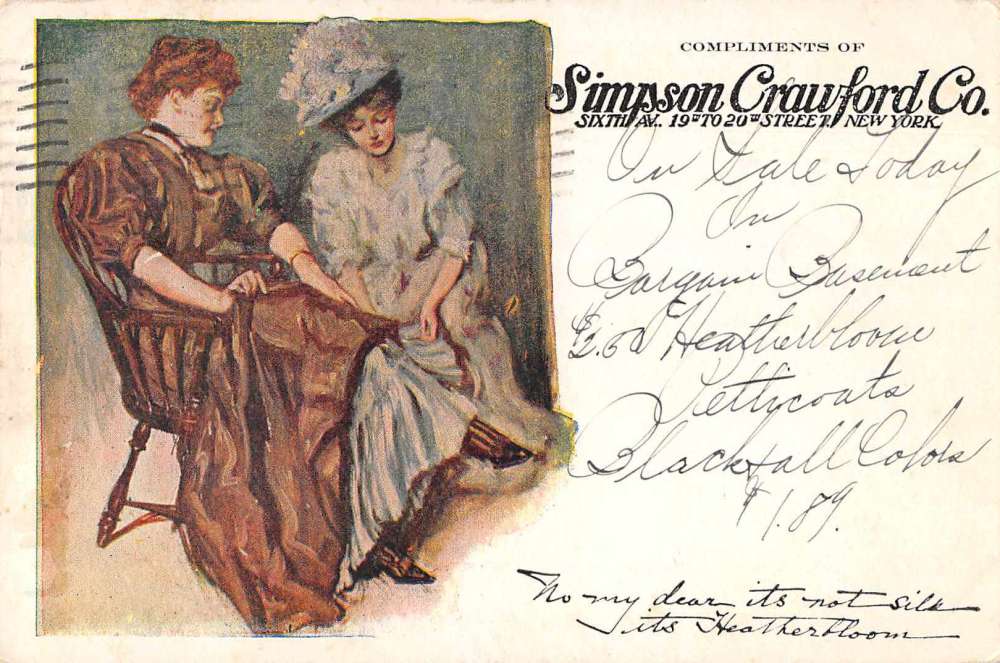 COMPLIMENTS OF
Simpson Crawford Co.
SIXTH AV. 19TH TO 20TH STREET, NEW YORK
On Sale Today
On
Bargain Basement
$2.50 Heatherbloom
Petticoats
Black & all Colors
$1.89.
No my dear its not silk
its Heatherbloom